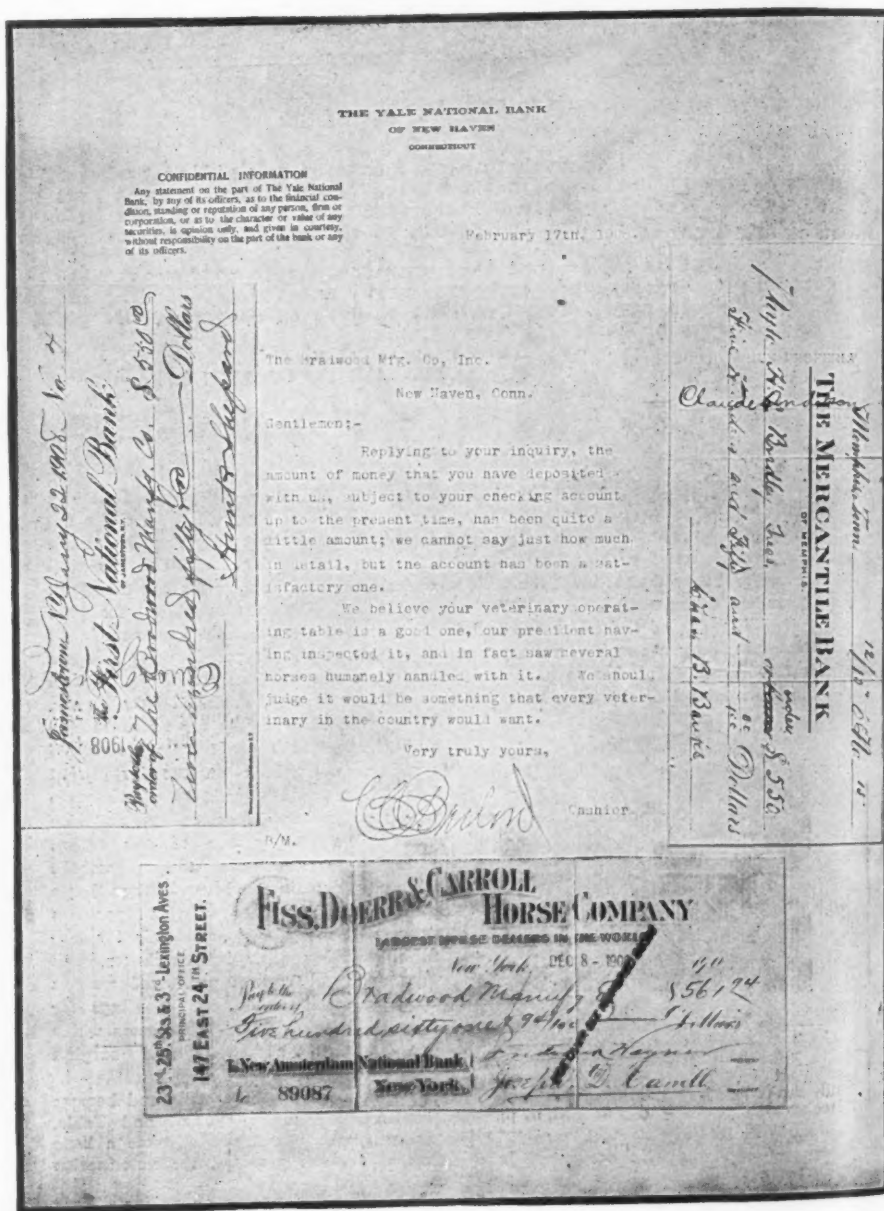 THE YALE NATIONAL BANK
OF NEW HAVEN
CONNECTICUT
CONFIDENTIAL INFORMATION
Any statement on the part of The Yale National
Bank, by any of its officers, as to the financial con-
dition, standing or reputation of any person, firm or
corporation, or as to the character or value of any
securities, is opinion only, and given in courtesy,
without responsibility on the part of the bank or any
of its officers.
February 17th,
The Mfg. Co, Inc.
New Haven, Conn.
Gentlemen:-
Replying to your inquiry, the
amount of money that you have deposited
with us, subject to your checking account
up to the present time, has been quite a
little amount; we cannot say just how much
in detail, but the account has been a sat-
isfactory one.
We believe your veterinary operat-
ing table is a good one, our president hav-
ing inspected it, and in fact saw several
horses humanely handled with it. We should
judge it would be something that every veter-
inary in the country would want.
Very truly yours,
Cashier
B/M.
Jamestown, N.Y. 22 1908 No 4
The First National Bank
OF JAMESTOWN, N.Y.
Pay to the order of The Bradwood Manfg Co. $550 00
hundred fifty Dollars
Hunt & Shepard
1908
Memphis, Tenn 12/12
THE MERCANTILE BANK
OF MEMPHIS.
or order $550
Five Hundred and Fifty and Dollars
B. Banks
Claude Anderson
FISS, DOERR & CARROLL
HORSE COMPANY
LARGEST HORSE DEALERS IN THE WORLD
23rd-25th Sts. & 3rd-Lexington Aves.
PRINCIPAL OFFICE
147 EAST 24TH STREET.
New York, DEC 8 - 190
Pay to the order of Bradwood Manufg Co $561 94
Five hundred sixty one & 94/100 Dollars
To New Amsterdam National Bank
New York.
No 89087
Joseph D. Carroll